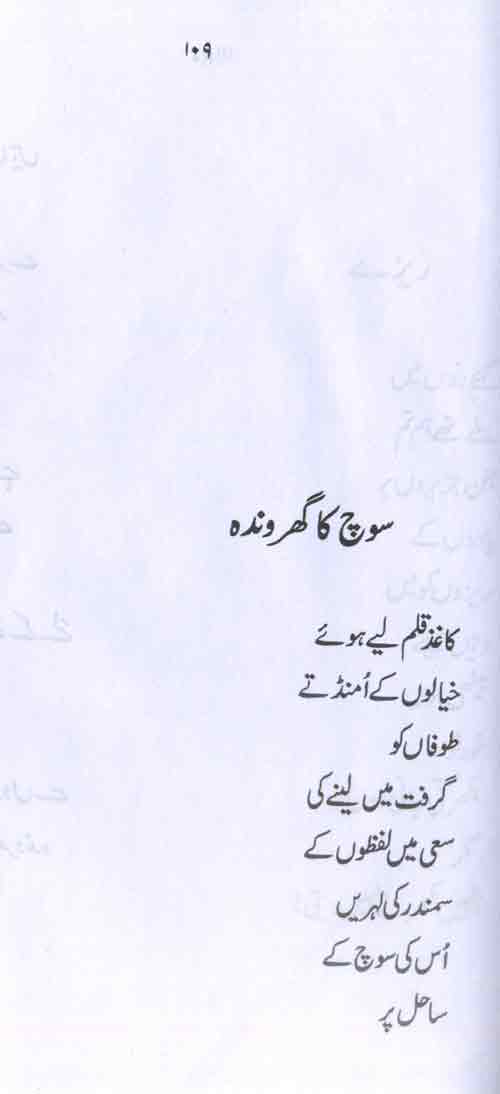 ۱۰۹
سوچ کا گھروندہ
کاغذ قلم لیے ہوئے
خیالوں کے اُمنڈتے
طوفاں کو
گرفت میں لینے کی
سعی میں لفظوں کے
سمندر کی لہریں
اُس کی سوچ کے
ساحل پر